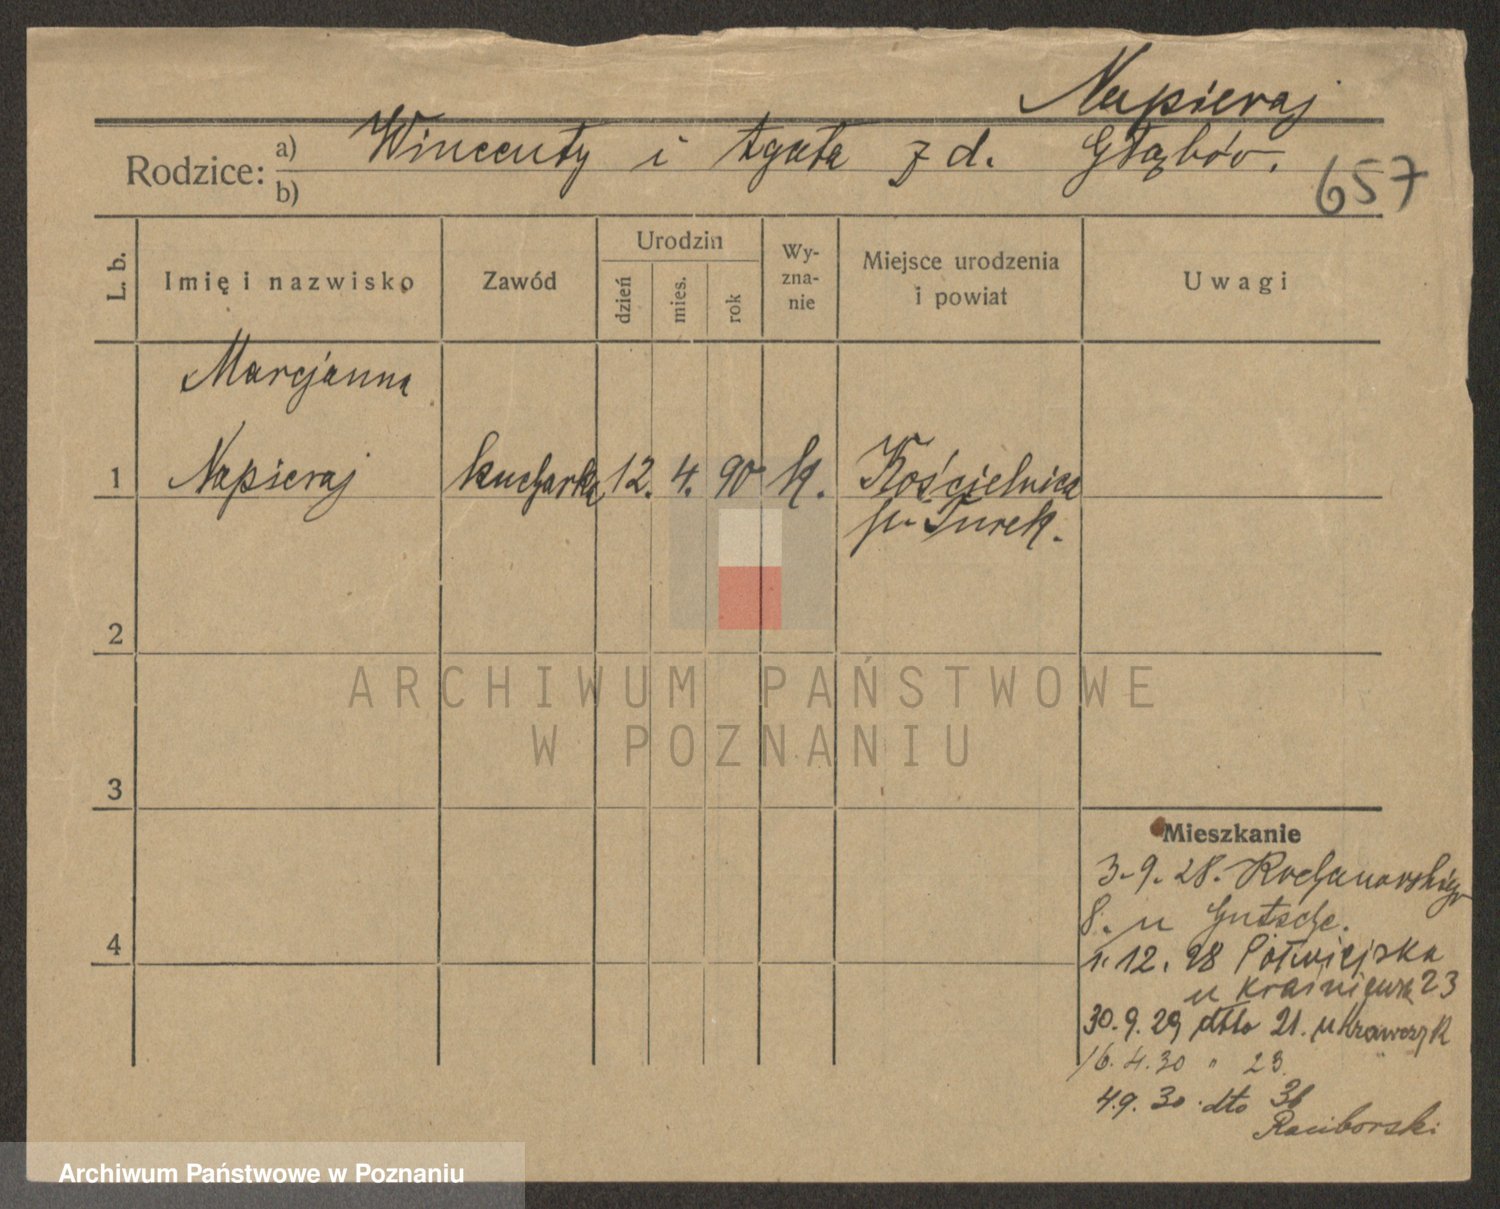 Napieraj
Rodzice: a) Wincenty i Agata z d. Głąbów.
b)
657
L. b.
Imię i nazwisko
Zawód
Urodzin
dzień
mies.
rok
Wy-
zna-
nie
Miejsce urodzenia
i powiat
Uwagi
Marcjanna
1 Napieraj kucharka 12. 4. 90 k. Kościelnica
p. Turek.
2
ARCHIWUM PAŃSTWOWE
W POZNANIU
3
Mieszkanie
3.9.28. Kochanowskiego
8. u Gutsche.
4
1.12.28 Półwiejska
u 23
30.9.29 dtto 21. u Krawczyk
16.4.30 " 23.
4.9.30. dto 36
Raciborski
Archiwum Państwowe w Poznaniu